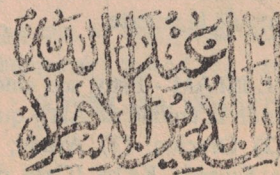 ان الدين عند الله الاسلام